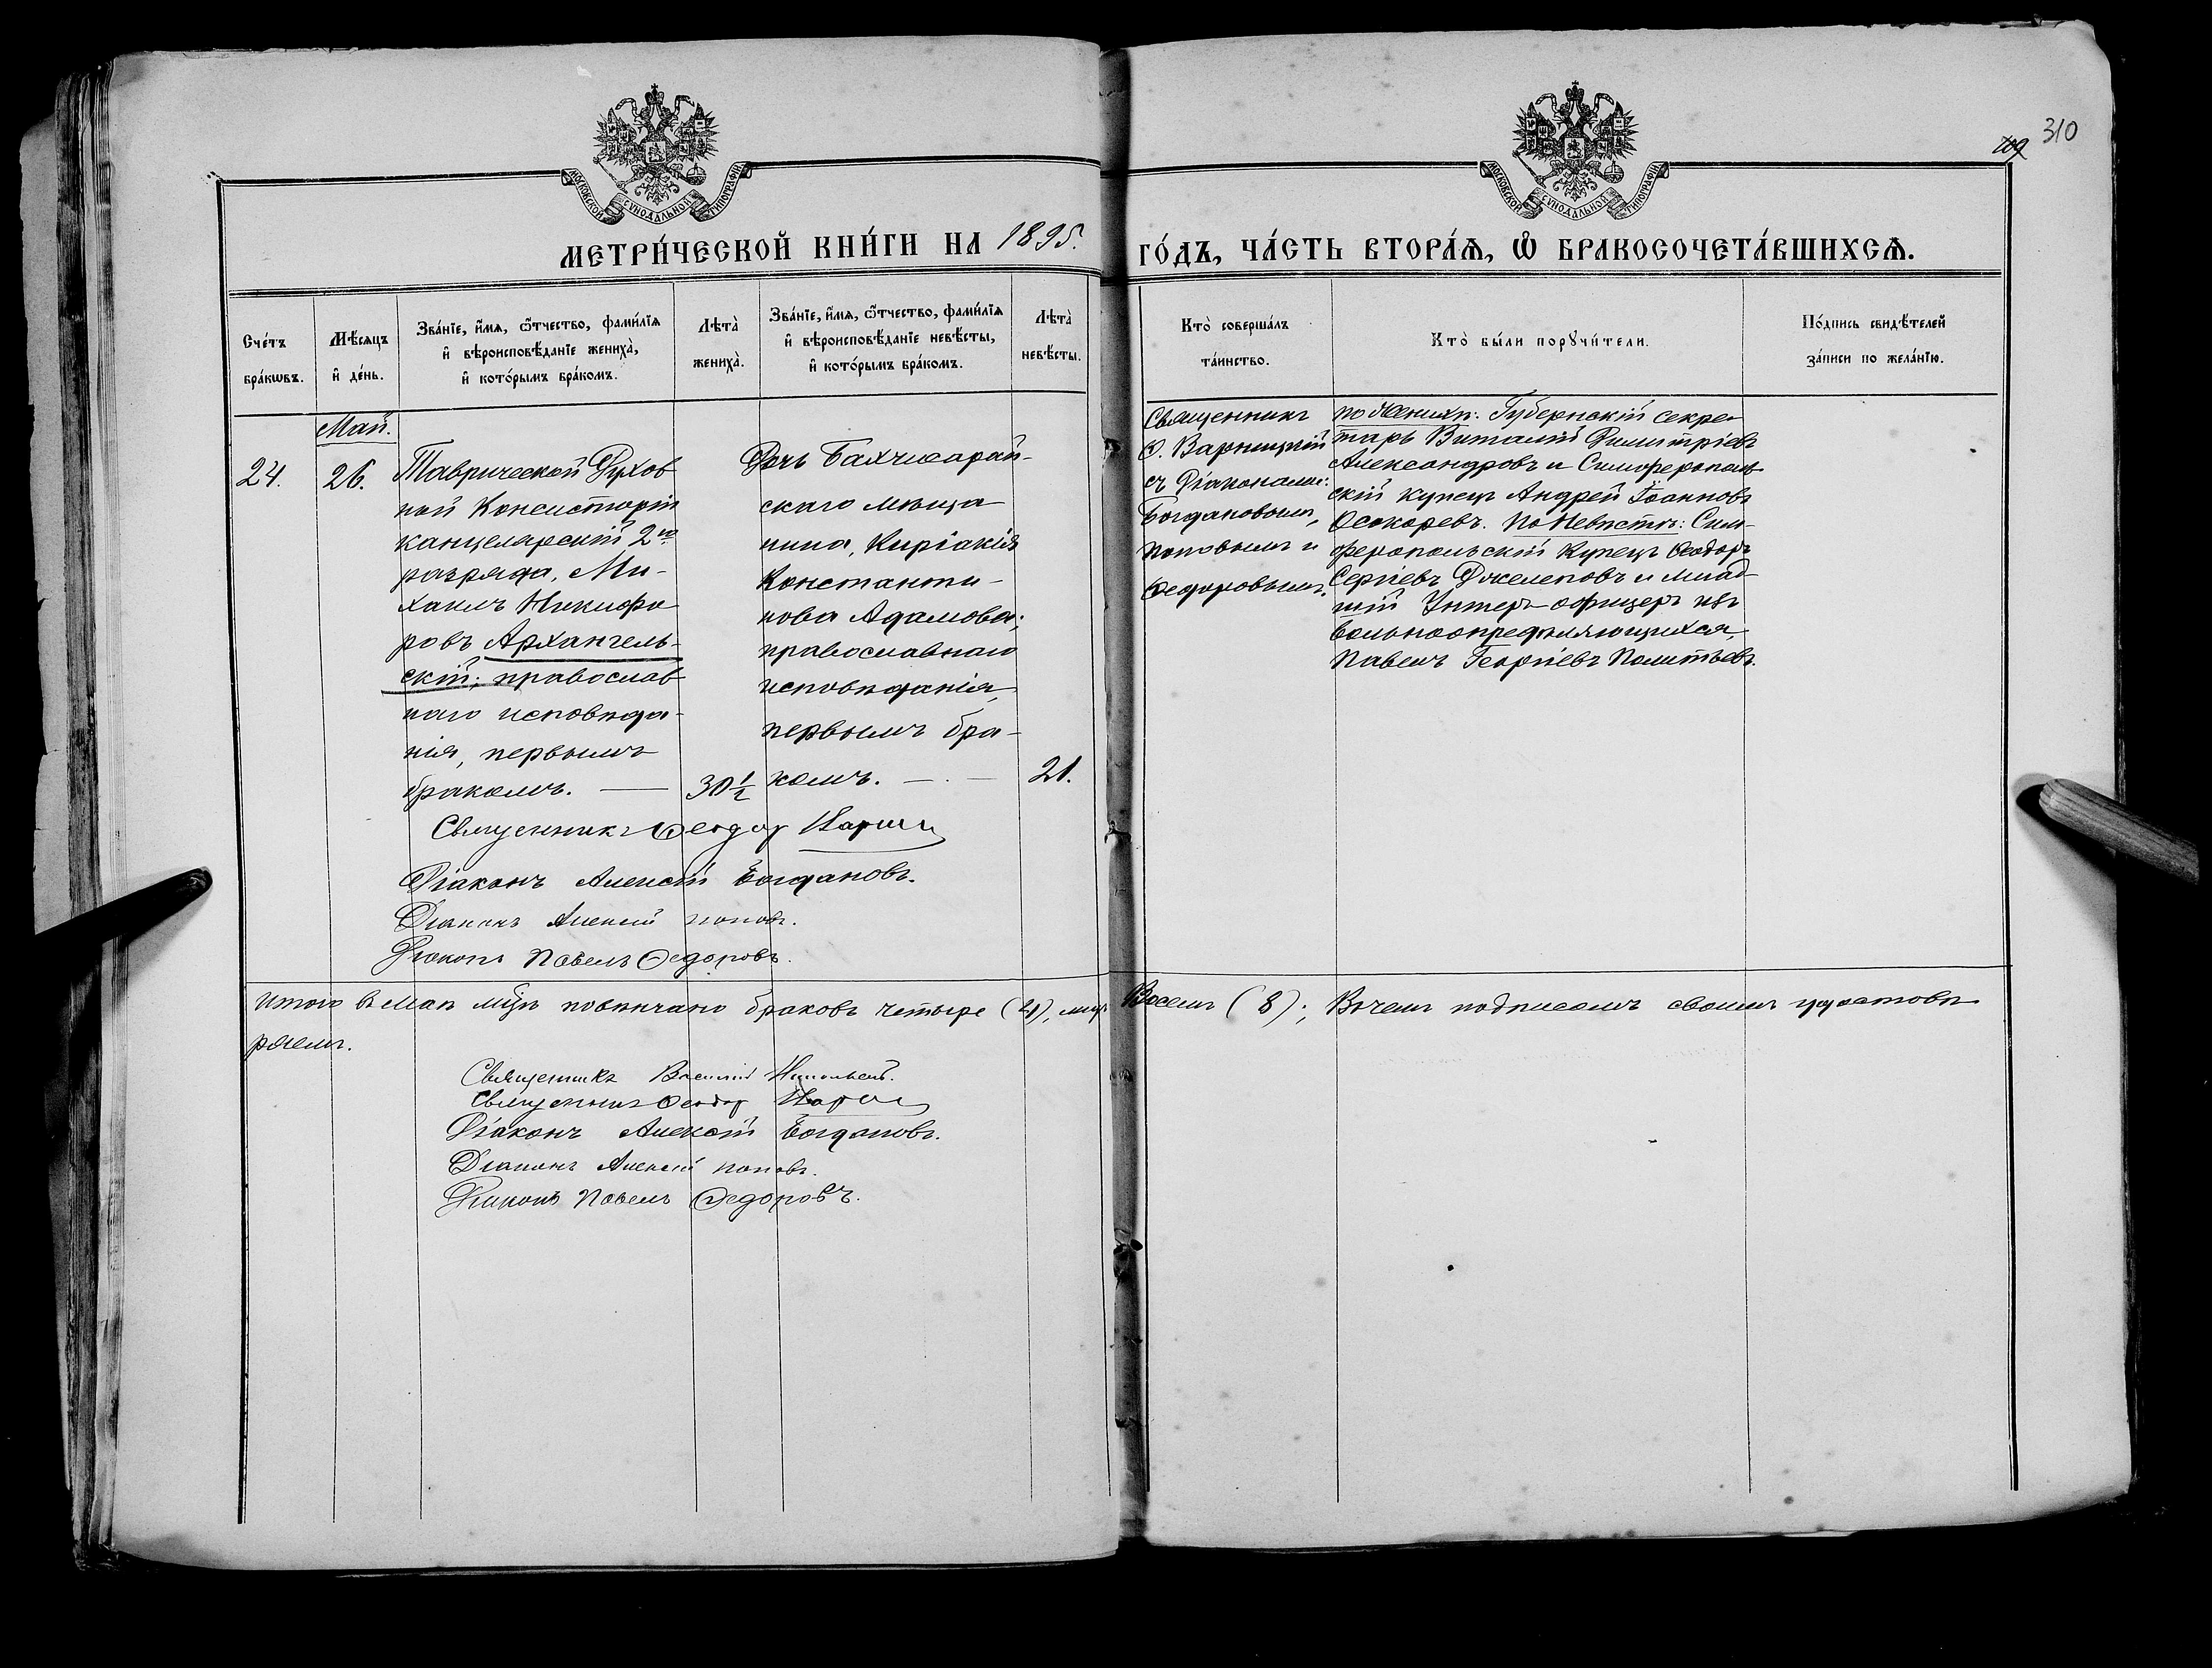 310
709
МОСКОВСКОЙ СѴНОДАЛЬНОЙ ТИПОГРАФІИ
МОСКОВСКОЙ СѴНОДАЛЬНОЙ ТИПОГРАФІИ
МЕТРИ́ЧЕСКОЙ КНИ́ГИ НА 1895.
ГО́ДЪ, ЧА́СТЬ ВТОРА́Ѧ, Ѽ БРАКОСОЧЕТА́ВШИХСѦ.
Сче́тъ
бра́кѡвъ.
Мѣ́сяцъ
и҆ де́нь.
Зва́нїе, и҆́мѧ, ѻ҆́тчество, фами́лїѧ
и҆ вѣроисповѣ́данїе жениха̀,
и҆ кото́рымъ бра́комъ.
Лѣта̀
жениха̀.
Зва́нїе, и҆́мѧ, ѻ҆́тчество, фами́лїѧ
и҆ вѣроисповѣ́данїе невѣ́сты,
и҆ кото́рымъ бра́комъ.
Лѣта̀
невѣ́сты.
Кто̀ соверша́лъ
та́инство.
Кто̀ бы́ли порꙋчи́тели.
По́дпись свидѣ́телей
за́писи по жела́нїю.
Май.
24.
26.
Таврической Духов
ной Консисторіи
канцелярскій 2го
разряда, Ми-
хаилъ Никифо
ровъ Архангель-
скій; православ
наго исповѣда-
нія, первымъ
бракомъ. —
30½
Дочь Бахчисарай-
скаго мѣща
нина, Киріакія
Константи-
нова Адамова;
православнаго
исповѣданія,
первымъ бра-
комъ. — . —
21.
Священникъ
Ѳ. Варницкій
съ Діаконами:
Богдановымъ,
Поповымъ и
Ѳедоровымъ.
по Женихѣ: Губернскій секре-
тарь Виталій Димитріевъ
Александровъ и Симферополь-
скій купецъ Андрей Іоанновъ
Осокоревъ. По Невѣстѣ: Сим-
феропольскій Купецъ Ѳеодоръ
Сергіевъ Джелеповъ и млад-
шій Унтеръ-офицеръ изъ
вольноопредѣляющихся,
Павелъ Георгіевъ Политьевъ.
Священникъ Ѳеодоръ
Діаконъ Алексій Богдановъ.
Діаконъ Алексій Поповъ.
Діаконъ Павелъ Ѳедоровъ.
Итого въ Маѣ мцѣ повѣнчано браковъ четыре (4), лицъ Восемь (8); Въ чемъ подписомъ своимъ удостовѣ
ряемъ.
Священникъ Василій
Священникъ Ѳеодоръ
Діаконъ Алексій Богдановъ.
Діаконъ Алексій Поповъ.
Діаконъ Павелъ Ѳедоровъ.